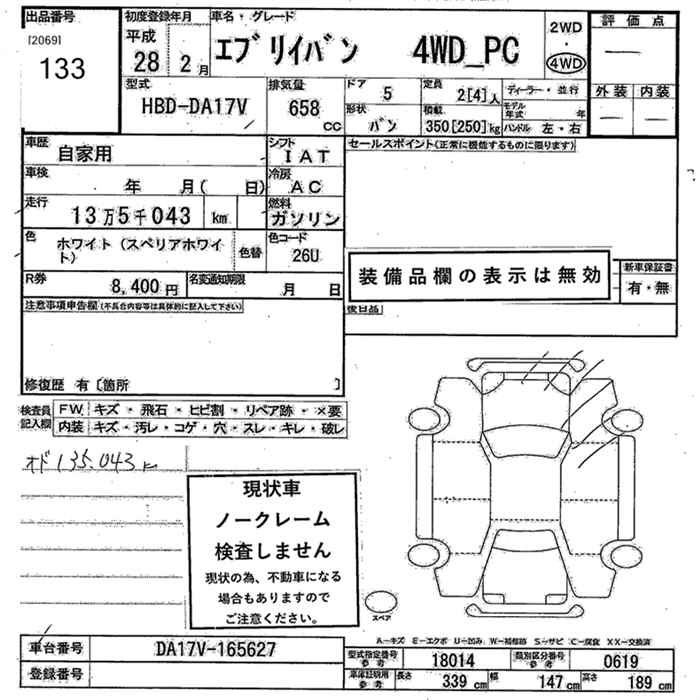 出品番号 初度登録年月 車名・グレード 2WD・4WD 評価点
[2069] 133
平成 28 2月
エブリイバン 4WD_PC
外装 内装
型式 HBD-DA17V
排気量 658 CC
ドア 5
定員 2[4]人
ディーラー・並行
形状 バン
積載 350[250]kg
モデル年式 年
ハンドル 左・右
車歴 自家用
シフト IAT
セールスポイント(正常に機能するものに限ります)
車検 年 月( 日)
冷房 AC
走行 13万5千043 km
燃料 ガソリン
色 ホワイト(スペリアホワイト)
色替
色コード 26U
装備品欄の表示は無効
新車保証書
有・無
R券 8,400円
名変通知期限 月 日
後日品
注意事項申告欄(不具合内容等は具体的に記入して下さい)
修復歴 有〔箇所 〕
検査員記入欄
FW キズ・飛石・ヒビ割・リペア跡・×要
内装 キズ・汚レ・コゲ・穴・スレ・キレ・破レ
オド 135.043k
現状車
ノークレーム
検査しません
現状の為、不動車になる
場合もありますので
ご注意ください。
スペア
A-キズ E-エクボ U-凹み W-補修跡 S-サビ C-腐食 XX-交換済
車台番号 DA17V-165627
型式指定番号 参考 18014
類別区分番号 参考 0619
登録番号
車庫証明用 参考
長さ 339cm 幅 147cm 高さ 189cm